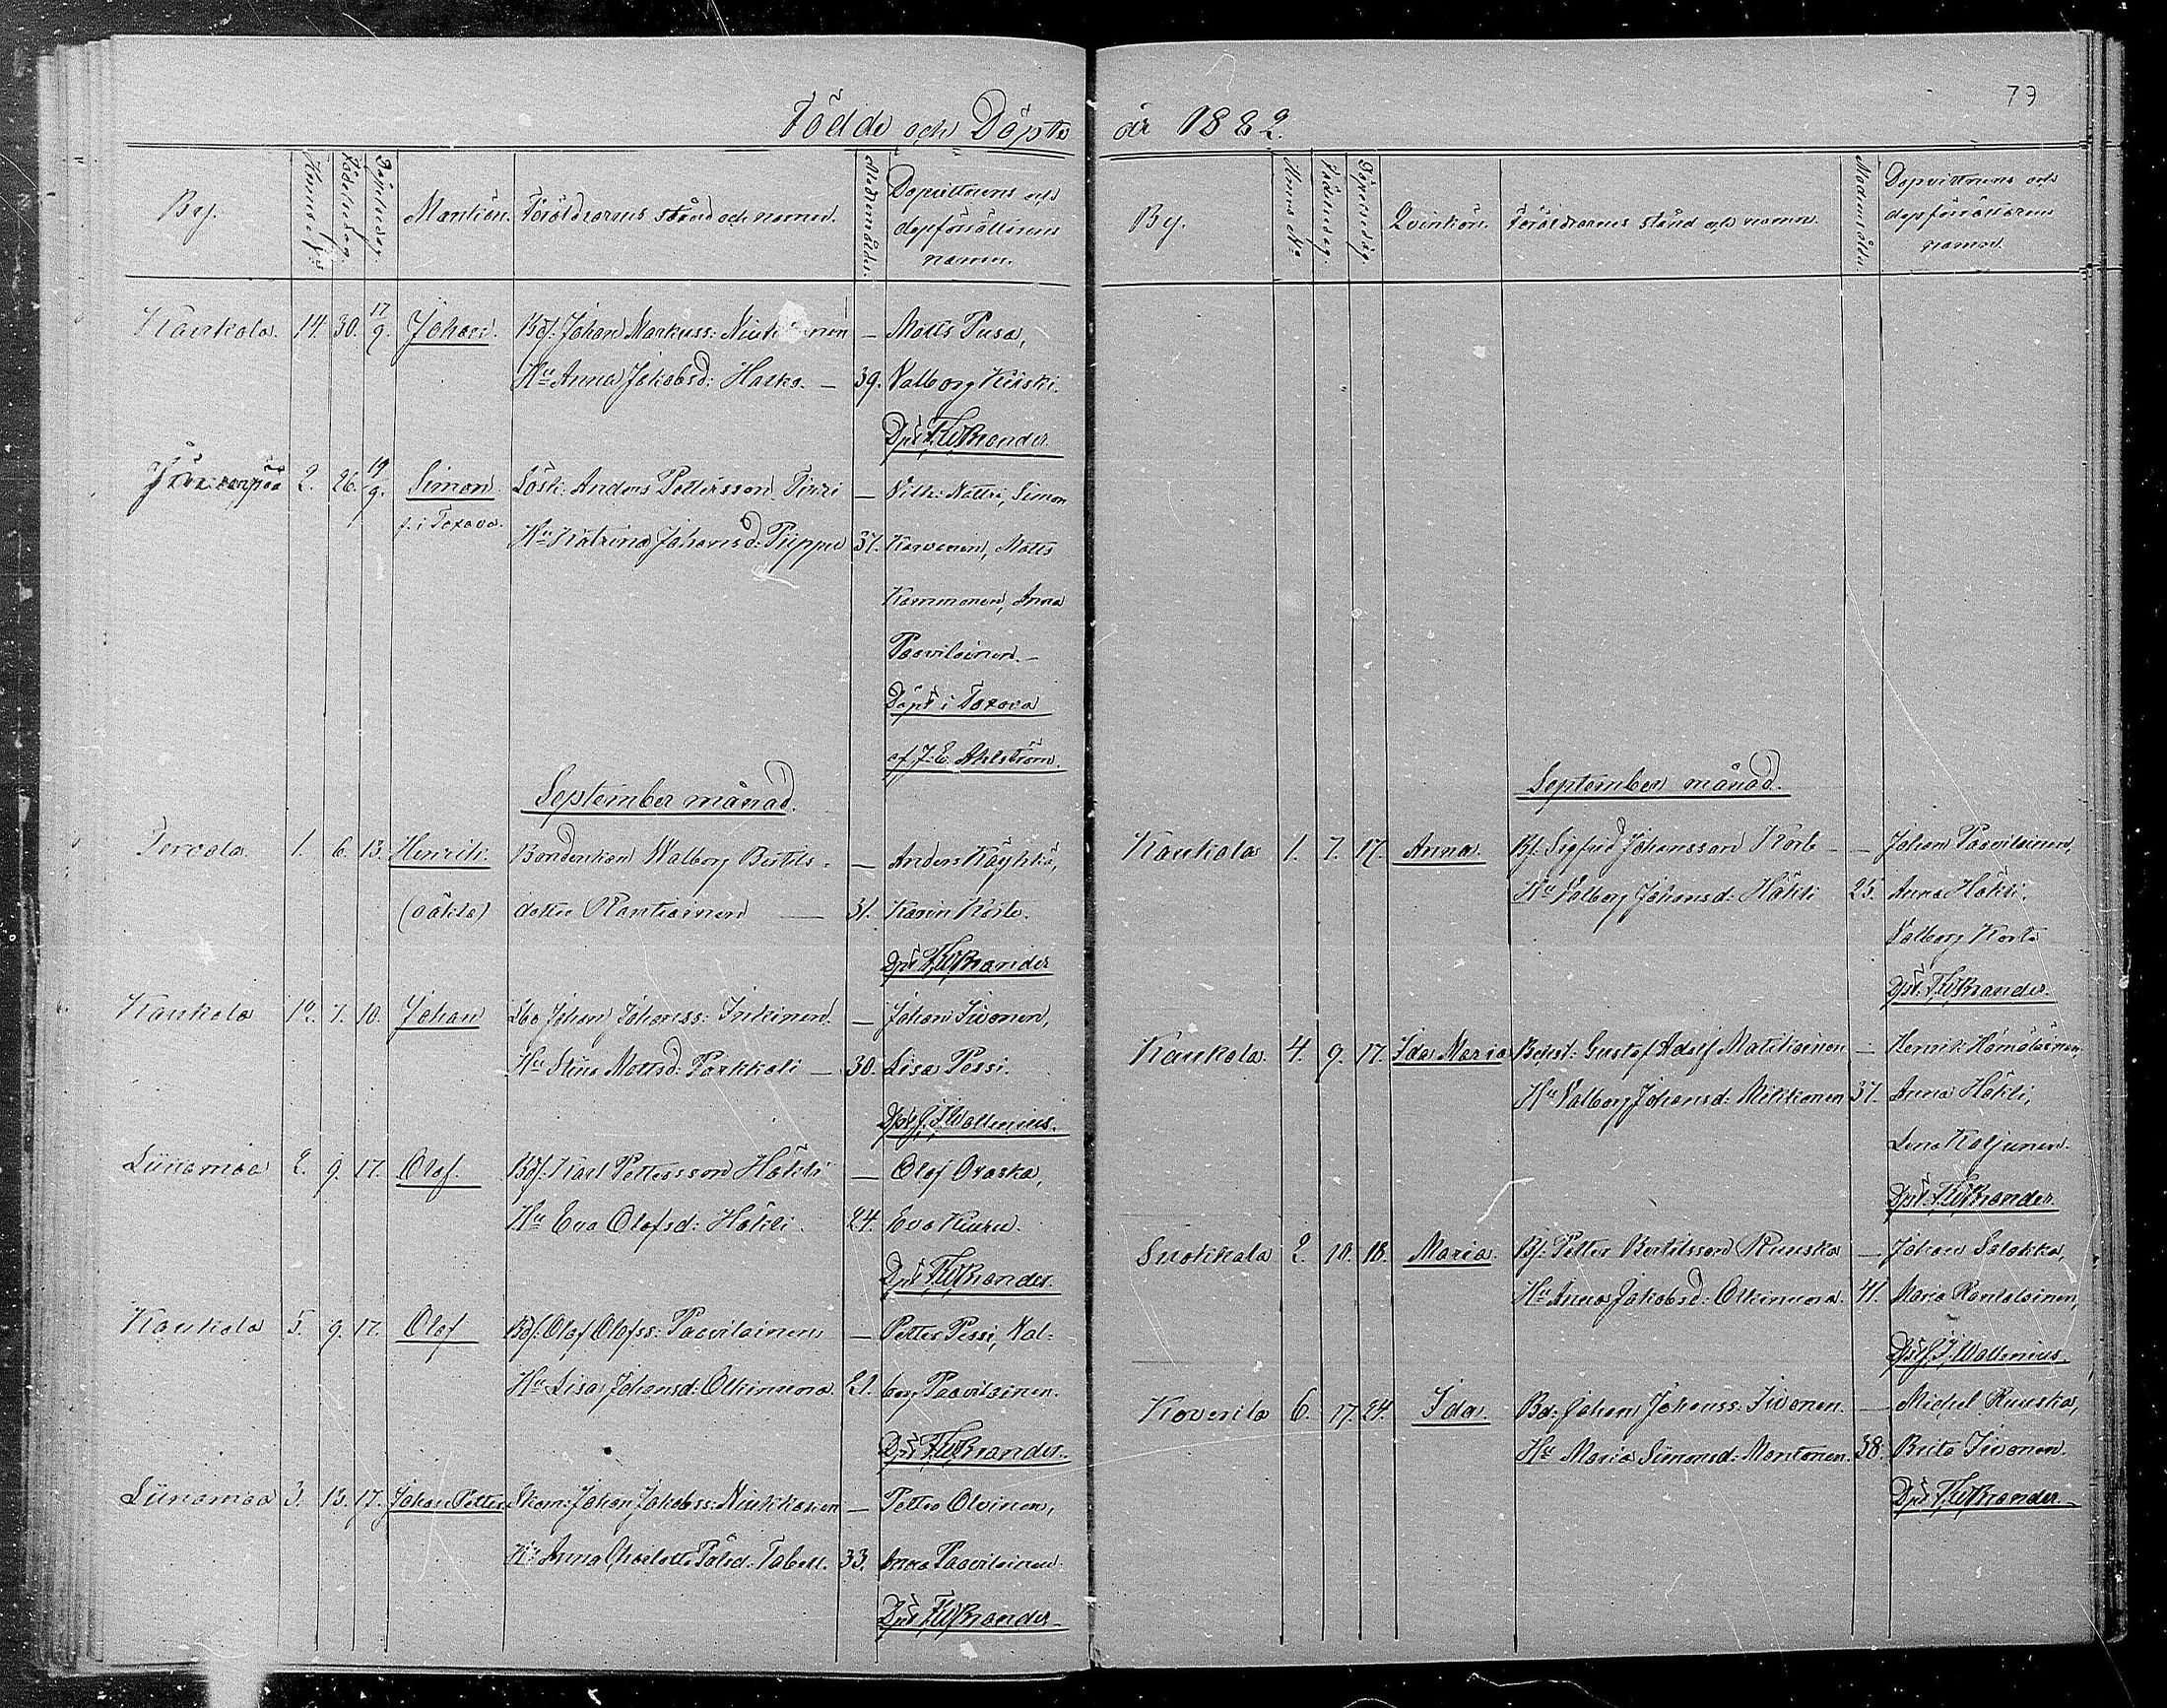 73
Födde och Döpte år 1882.
By. Hemmets No Födelsedag. Döpelsedag. Mankön. Föräldrarnes stånd och namn. Modrens ålder. Dopvittnens och
dopförrättarens
namn.
Kaukola. 14. 30. 17/9. Johan. Bdf. Johan Markuss: – Matts Pusa,
Hu Anna Jakobsd: Haska. – 39. Valborg Kiiski.
Dpt F.W. Brander.
Järvenpää 2. 26. 19/9. Simon. Lösk: Anders Pettersson Tiiri – Vilh: Nättri, Simon
f. i Toxova. Hu Katrina Johansd: Pippo 37. Karvonen, Matts
Kammonen, Anna
Paavilainen. –
Döpt i Toxova
af J. E. Ahlström.
September månad.
Tervola 1. 6. 13. Henrik. Bondenkan Walborg Bertils- – Anders Käyhkö,
(oäkta) dotter Rantiainen – 31. Karin Korte.
Dpt F.W. Brander
Kaukola 10. 7. 10. Johan Johan Johanss: Inkinen. – Johan Sivonen,
Hu Stina Mattsd: Parkkali – 30. Lisa Pessi.
Dpt J. J. Wallenius.
Liinamaa 2. 9. 17. Olof. Bdf. Karl Pettersson Häkli – Olof Oraska,
Hu Eva Olofsd: Häkli. 24. Eva Kuuru.
Dpt F.W. Brander.
Kaukola 5. 9. 17. Olof Bdf. Olof Olofss: Paavilainen – Petter Pessi, Val-
Hu Lisa Johansd: Olkinuora. 21. borg Paavilainen.
Dpt F.W. Brander.
Liinamaa 3. 13. 17. Johan Petter Johan Jakobss: Niukkanen – Petter Olvinen,
Hu Anna Charlotta Pålsd: Tabell. 33. Anna Paavilainen.
Dpt F.W. Brander.
By. Hemmets No Födelsedag. Döpelsedag. Qvinkön. Föräldrarnes stånd och namn. Modrens ålder. Dopvittnens och
dopförrättarens
namn.
September månad.
Kaukola 1. 7. 17. Anna. Bf. Sigfrid Johansson Korte – – Johan Paavilainen,
Hu Valborg Johansd: Häkli 25. Anna Häkli.
Valborg Korte
Dpt. F.W. Brander.
Kaukola. 4. 9. 17. Ida Maria Gustaf Adolf Matikainen – Henrik Hämäläinen,
Hu Valborg Johansd: Mikkonen 37. Anna Häkli,
Lena Kaljunen.
Dpt. F.W. Brander.
Suokkala 2. 10. 18. Maria. Bf: Petter Bertilsson Ruuska – Johan Salakka,
Hu Anna Jakobsd: Olkinuora. 41. Maria Rantalainen,
Dpt J. J. Wallenius.
Koverila 6. 17. 24. Ida. Bd: Johan Johanss: Sivonen. – Michel Ruuska,
Hu Maria Simonsd: Mantonen. 38. Brita Sivonen.
Dpt F.W. Brander.